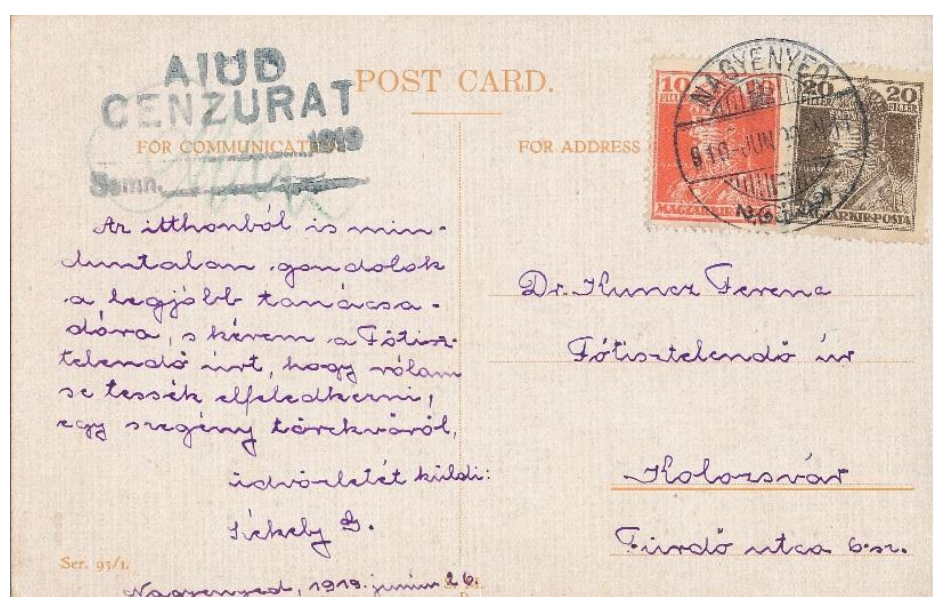 AIUD
CENZURAT
1919
Semn.
POST CARD.
FOR COMMUNICATION
FOR ADDRESS
10
FILLÉR
MAGYAR KIR
20
20
FILLÉR
MAGYAR KIR. POSTA
NAGYENYED
919 JUN
Az itthonból is min-
duntalan gondolok
a legjobb tanácsa-
dóra, s kérem a Főtisz-
telendő úrt, hogy rólam
se tessék elfeledkezni,
egy szegény törekvőről,
üdvözletét küldi:
Székely G.
Nagyenyed, 1919. junius 26.
Ser. 93/1.
Dr. Kuncz Ferenc
Főtisztelendő úr
Kolozsvár
Fürdő utca 6 sz.